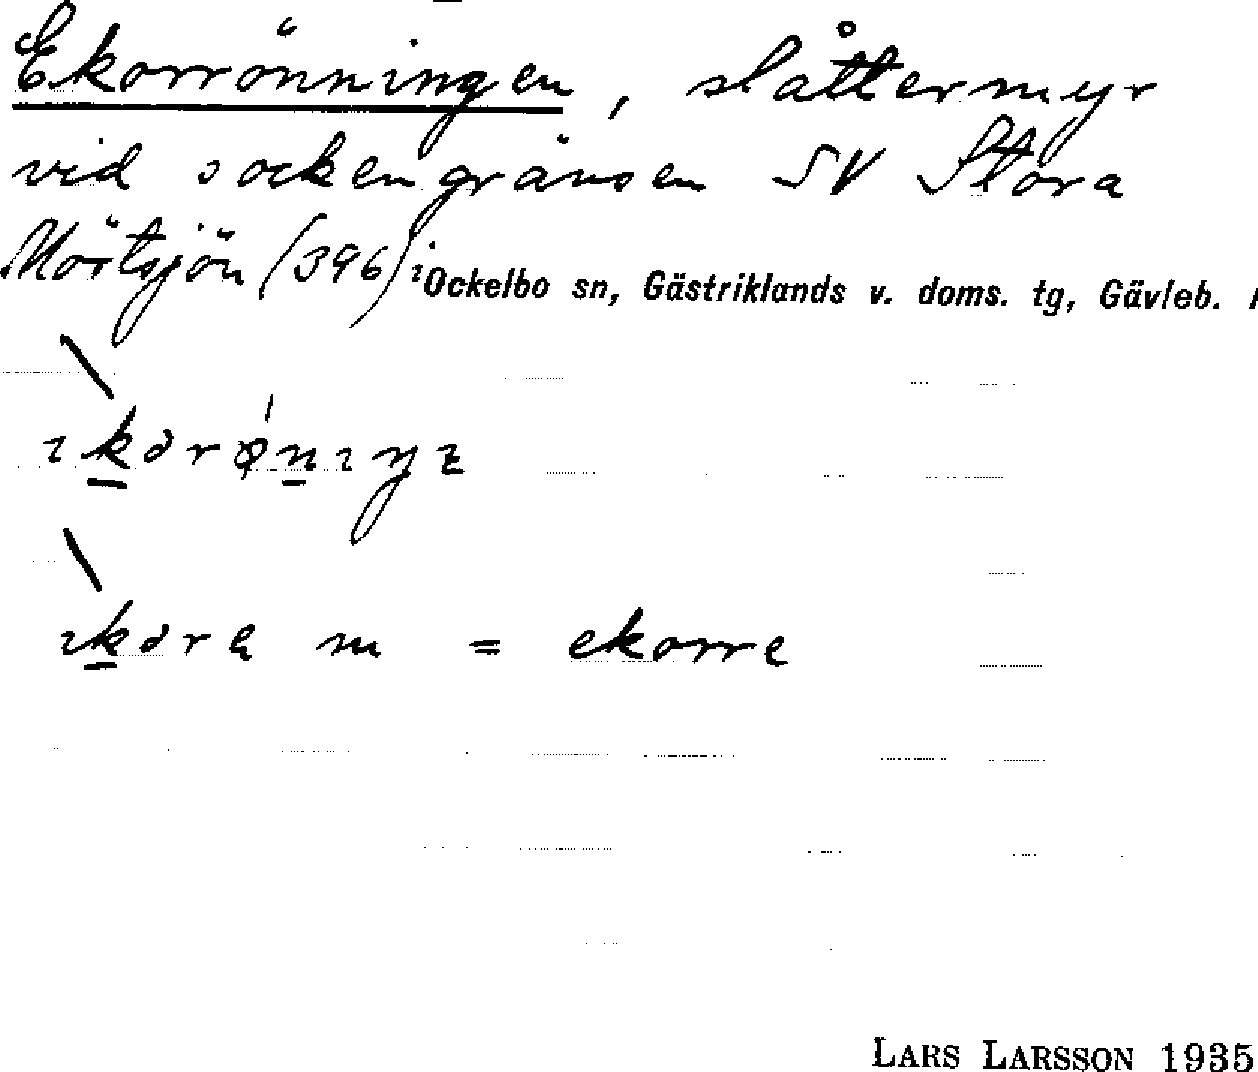 Ekorrönningen, slåttermyr
vid sockengränsen SV Stora
Mörtsjön (396) i Ockelbo sn, Gästriklands v. doms. tg, Gävleb. l
ìkɔrǿnıŋz
ìkɔrɐ m = ekorre
LARS LARSSON 1935